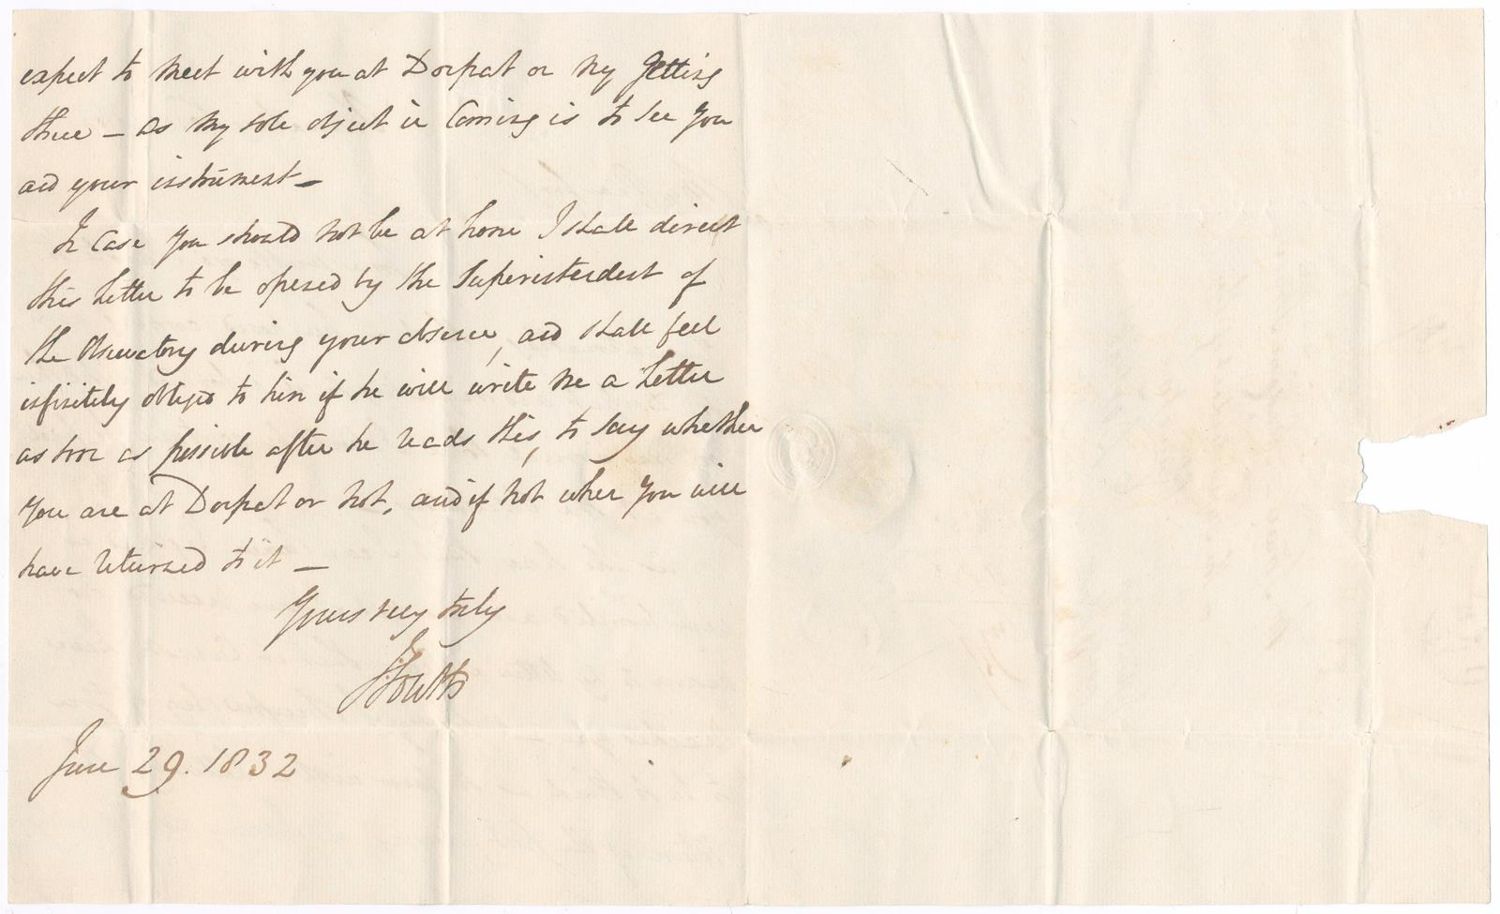 expect to meet with you at Dorpat on my getting
there – as my sole object in Coming is to see you
and your instrument –
In Case you should not be at home I shall direct
this letter to be opened by the Superintendent of
the Observatory during your absence, and shall feel
infinitely obliged to him if he will write me a Letter
as soon as possible after he reads this, to say whether
you are at Dorpat or not, and if not when you will
have returned to it –
Yours very truly
J South
June 29. 1832